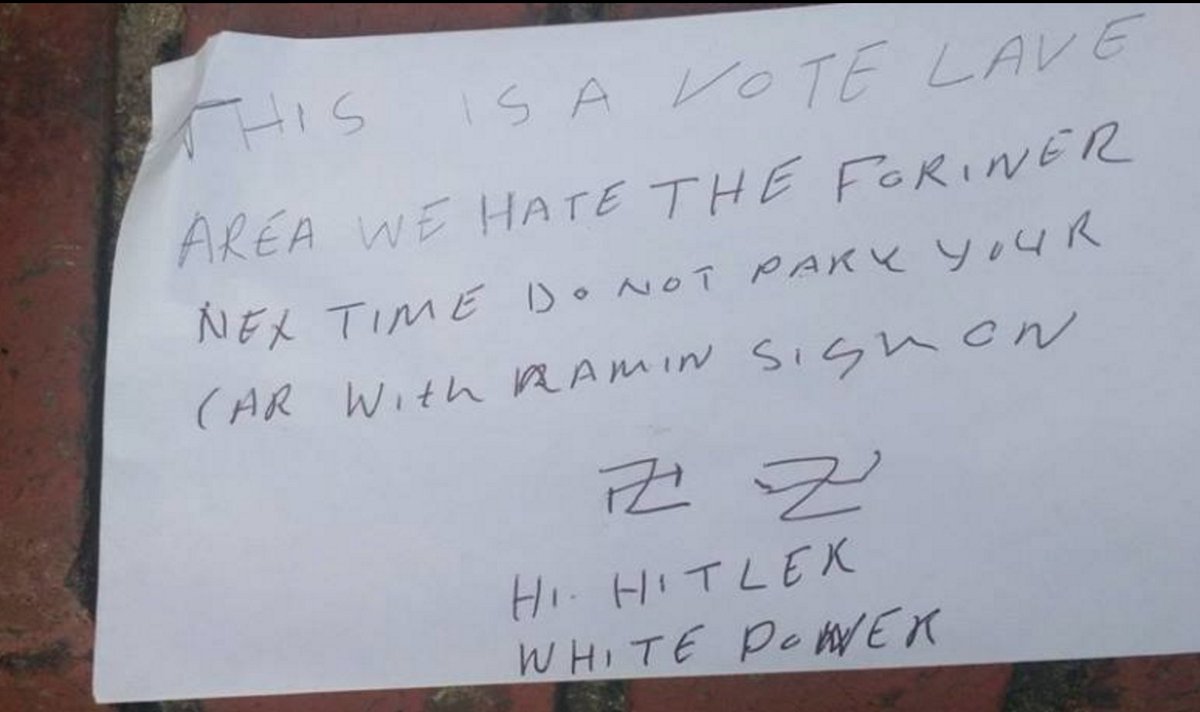 THIS IS A VOTE LAVE
AREA WE HATE THE FORINER
NEX TIME DO NOT PARK YOUR
CAR With RAMIN SIGN ON
HI. HITLER
WHITE POWER